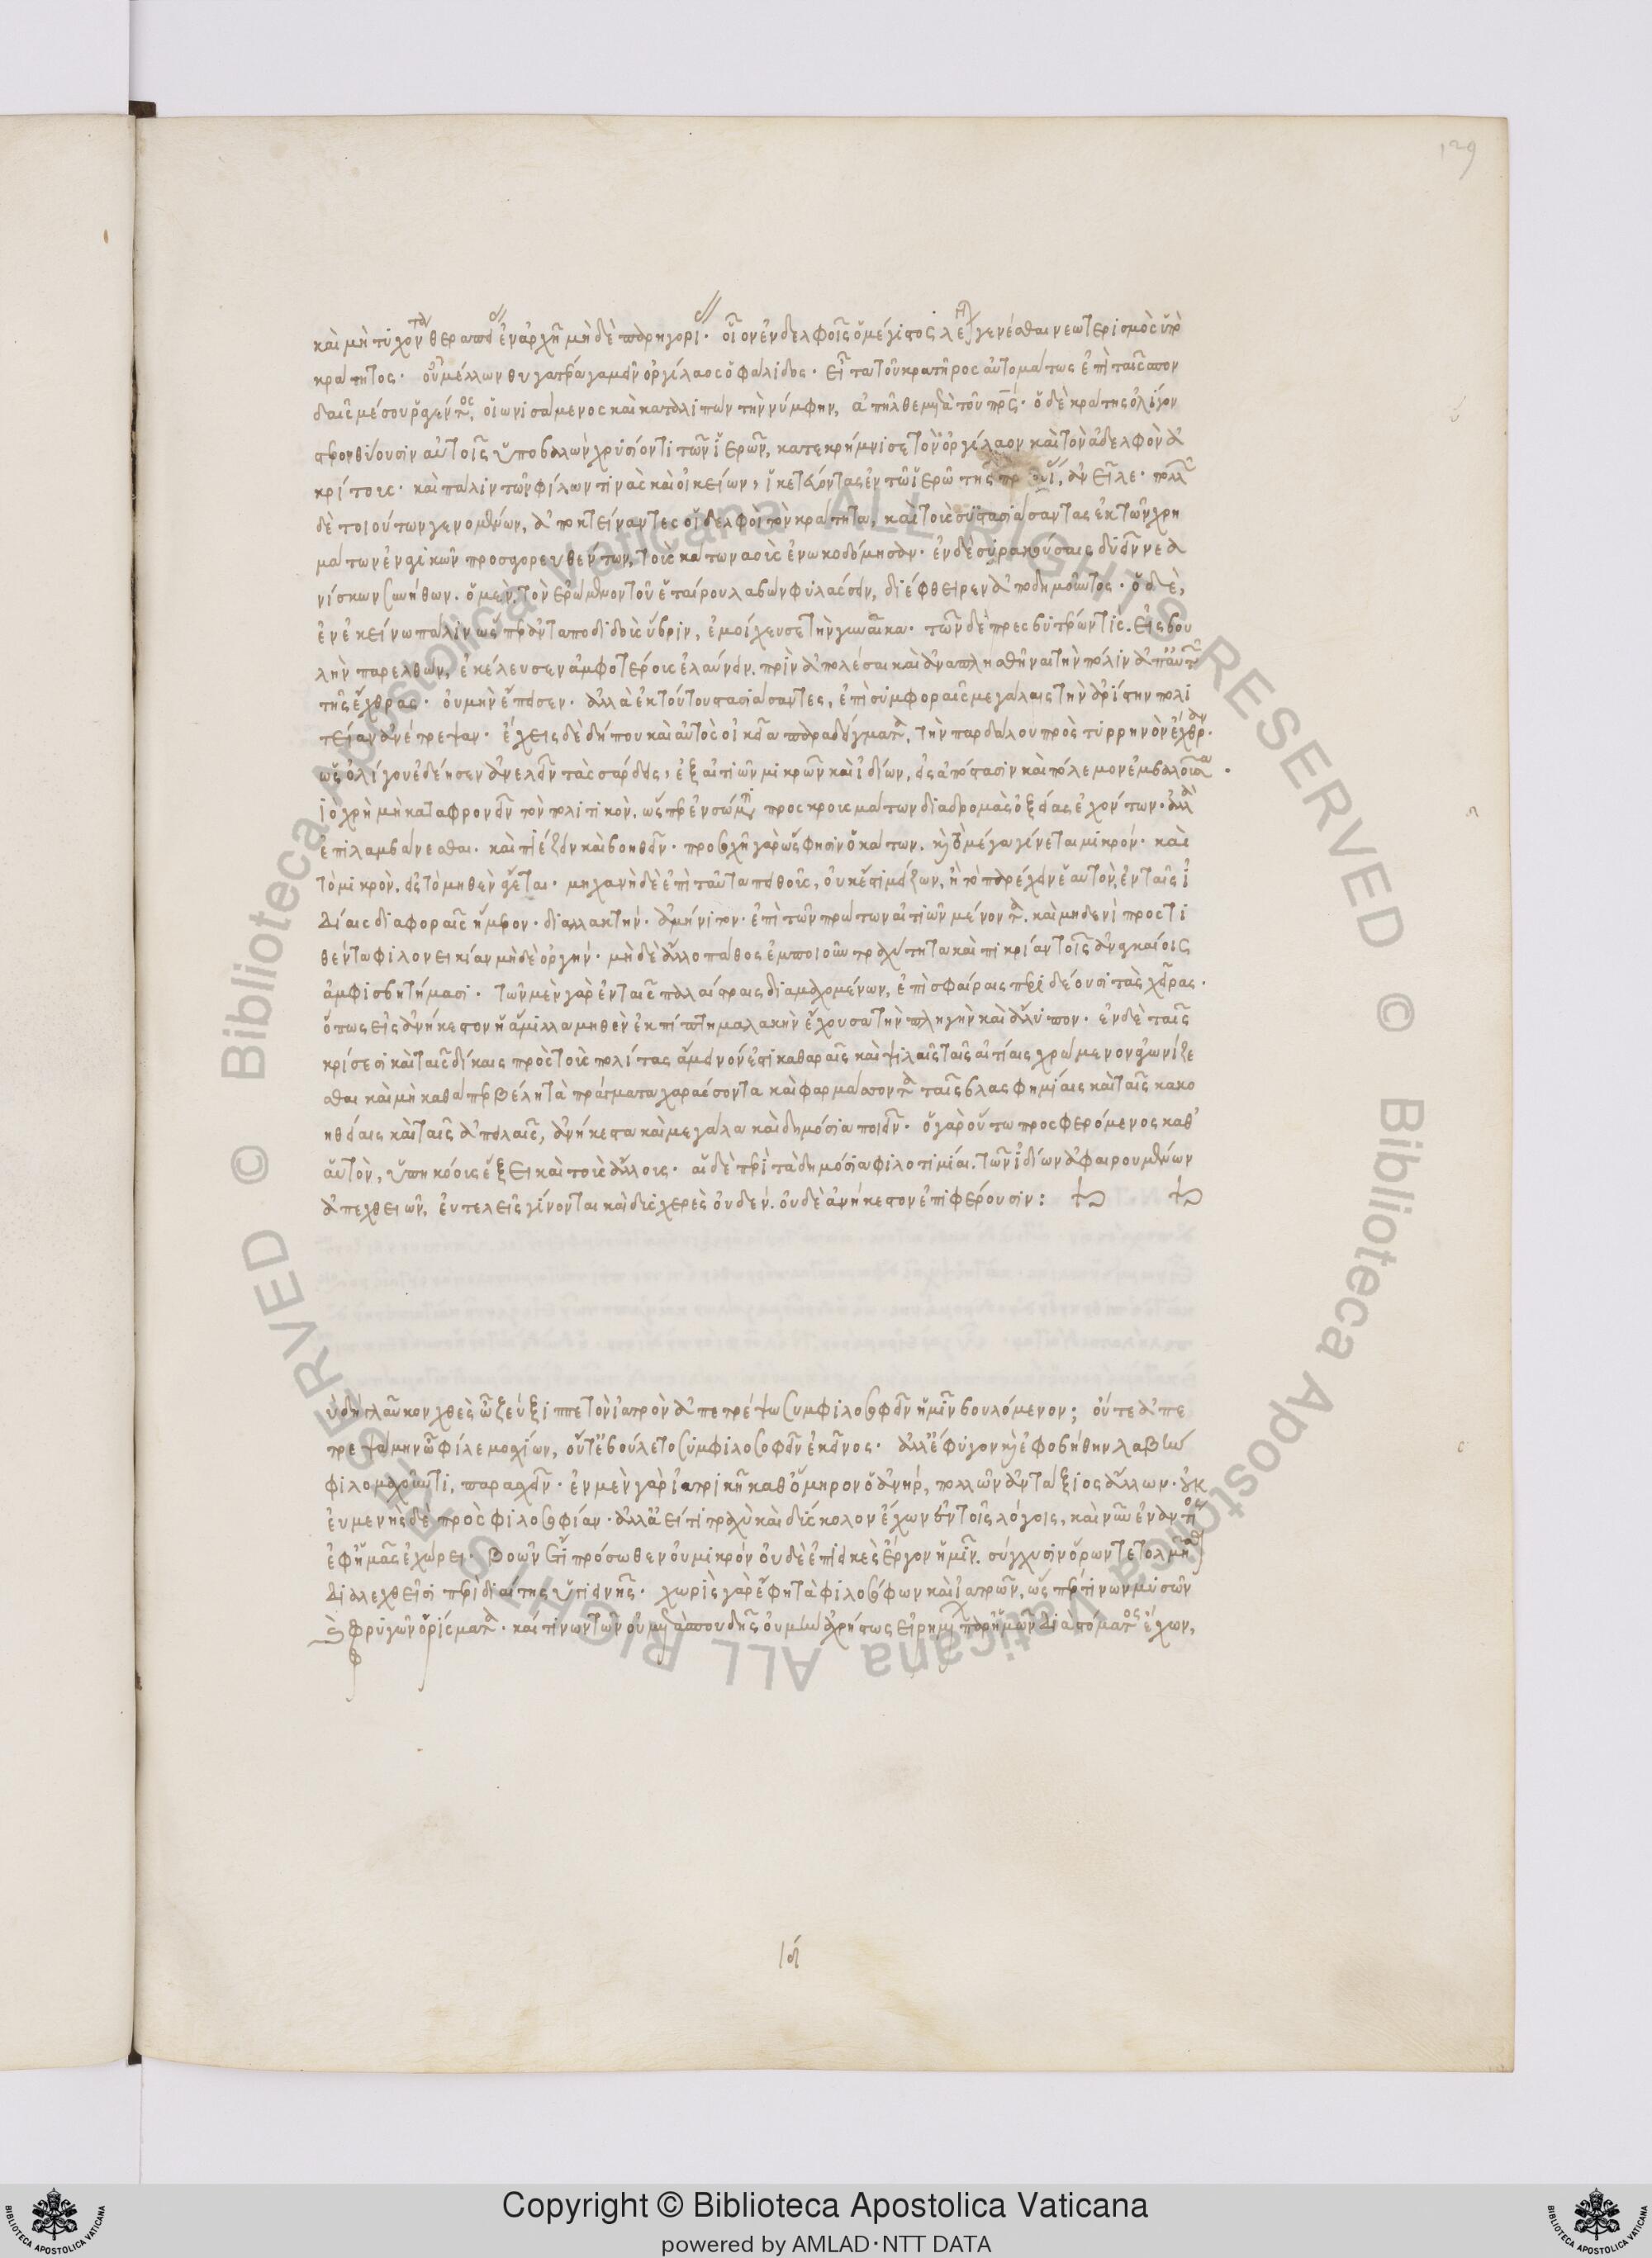 129
καὶ μὴ τύχον τῶν θεραπδ ἐν ἀρχῇ μὴ δὲ παρηγορί· οἷον ἐν δελφοῖς ὁ μέγιστος λέγ γενέσθαι νεωτερισμὸς ὑπὸ
κράτητος· οὗ μέλλων θυγατέρα γαμεῖν ὀργίλαος ὁ φάλιδος· εἶτα τοῦ κρατῆρος αὐτομάτως ἐπὶ ταῖς σπον
δαῖς μέσου ῥαγέντος, οἰωνισάμενος καὶ καταλιπὼν τὴν νύμφην, ἀπῆλθε μετὰ τοῦ πρς· ὁ δὲ κράτης ὀλίγον
ὕστερον θύουσιν αὐτοῖς ὑποβαλὼν χρυσίον τι τῶν ἱερῶν, κατεκρήμνισε τὸν ὀργίλαον καὶ τὸν ἀδελφὸν ἀ
κρίτους· καὶ πάλιν τῶν φίλων τινὰς καὶ οἰκείων, ἱκετεύοντας ἐν τῶ ἱερῶ τῆς προναί, ἀνεῖλε· πολλῶν
δὲ τοιούτων γενομένων, ἀποκτείναντες οἱ δελφοὶ τὸν κράτητα, καὶ τοὺς συστασιάσαντας ἐκ τῶν χρη
μάτων ἐναγικῶν προσαγορευθέντων, τοὺς κάτω ναοὺς ἐνωκοδόμησαν· ἐν δὲ συρακούσαις δυεῖν νεα
νίσκων συνήθων· ὁ μὲν τὸν ἐρώμενον τοῦ ἑταίρου λαβὼν φυλάσσειν, διέφθειρεν ἀποδημοῦντος· ὁ δὲ,
ἐν ἐκείνω πάλιν ὥσπερ ἀνταποδιδοὺς ὕβριν, ἐμοίχευσε τὴν γυναῖκα· τῶν δὲ πρεσβυτέρων τίς εἰς βου
λὴν παρελθὼν, ἐκέλευσεν ἀμφοτέρους ἐλαύνειν πρὶν ἀπολέσαι καὶ ἀναπλησθῆναι τὴν πόλιν ἀπ' αὐτῶν
τῆς ἔχθρας· οὐ μὴν ἔπεισεν· ἀλλὰ ἐκ τούτου στασιάσαντες, ἐπὶ συμφοραῖς μεγάλαις τὴν ἀρίστην πολι
τείαν ἀνέτρεψαν· ἔχεις δὲ δήπου καὶ αὐτὸς οἰκεῖα παραδείγματα, τὴν παρδάλου πρὸς τύρρηνὸν ἔχθραν·
ὡς ὀλίγου ἐδέησεν ἀνελεῖν τὰς σάρδεις, ἐξ αἰτιῶν μικρῶν καὶ ἰδίων, εἰς ἀπόστασιν καὶ πόλεμον ἐμβαλοῦσα·
διὸ χρὴ μὴ καταφρονεῖν τὸν πολιτικὸν, ὥσπερ ἐν σώματι προσκρουσμάτων διαδρομὰς ὀξείας ἐχόντων· ἀλλὰ
ἐπιλαμβάνεσθαι· καὶ πιέζειν καὶ βοηθεῖν· προσοχῇ γὰρ ὥς φησιν ὁ κάτων, καὶ τὸ μέγα γίνεται μικρόν· καὶ
τὸ μικρὸν, εἰς τὸ μηθὲν ἄγεται· μηχανὴ δὲ ἐπὶ ταῦτα πειθοῦς, οὐκ ἔστι μείζων, ἢ τὸ παρέχειν ἑαυτὸν, ἐν ταῖς ἰ
δίαις διαφοραῖς ἥμερον· διαλλακτήν· ἀμήνιτον· ἐπὶ τῶν πρώτων αἰτιῶν μένοντα· καὶ μηδενὶ προστι
θέντα φιλονεικίαν μὴ δὲ ὀργήν· μὴ δὲ ἄλλο πάθος ἐμποιοῦν τραχύτητα καὶ πικρίαν τοῖς ἀναγκαίοις
ἀμφισβητήμασι· τῶν μὲν γὰρ ἐν ταῖς παλαίστραις διαμαχομένων, ἐπισφαίραις περιδέουσι τὰς χεῖρας·
ὅπως εἰς ἀνήκεστον ἡ ἅμιλλα μηθὲν ἐκπίπτη μαλακὴν ἔχουσα τὴν πληγὴν καὶ ἄλυπον· ἐν δὲ ταῖς
κρίσεσι καὶ ταῖς δίκαις πρὸς τοὺς πολίτας ἄμεινόν ἐστι καθαραῖς καὶ ψιλαῖς ταῖς αἰτίαις χρώμενον ἀγωνίζε
σθαι καὶ μὴ καθάπερ βέλη τὰ πράγματα χαράσσοντα καὶ φαρμάσσοντα ταῖς βλασφημίαις καὶ ταῖς κακο
ηθείαις καὶ ταῖς ἀπειλαῖς, ἀνήκεστα καὶ μεγάλα καὶ δημόσια ποιεῖν· ὁ γὰρ οὕτω προσφερόμενος καθ'
αὑτὸν, ὑπηκόους ἕξει καὶ τοὺς ἄλλους· αἱ δὲ περὶ τὰ δημόσια φιλοτιμίαι, τῶν ἰδίων ἀφαιρουμένων
ἀπεχθειῶν, εὐτελεῖς γίνονται καὶ δυσχερὲς οὐδὲν οὐδὲ ἀνήκεστον ἐπιφέρουσιν:
ὺ δὴ γλαῦκον χθὲς ὦ ζεύξιππε τὸν ἰατρὸν ἀπετρέψω συμφιλοσοφεῖν ἡμῖν βουλόμενον; οὔτε ἀπε
τρεψάμην ὦ φίλε μοσχίων, οὔτε ἐβούλετο συμφιλοσοφεῖν ἐκεῖνος· ἀλλ' ἔφυγον καὶ ἐφοβήθην λαβὴν
φιλομαχοῦντι, παρασχεῖν· ἐν μὲν γὰρ ἰατρικῇ καθ' ὅμηρον ὁ ἀνὴρ, πολλῶν ἀντάξιος ἄλλων· οὐκ
εὐμενὴς δὲ πρὸς φιλοσοφίαν· ἀλλὰ ἀεί τι τραχὺ καὶ δύσκολον ἔχων ἐν τοῖς λόγοις, καὶ νῦν ἐναντίος
ἐφ' ἡμᾶς ἐχώρει· βοῶν ἔτι πρόσωθεν οὐ μικρὸν οὐδὲ ἐπιεικὲς ἔργον ἡμῖν, σύγχυσιν ὅρων τετολμῆσθαι
διαλεχθεῖσι περὶ διαίτης ὑγιεινῆς· χωρὶς γὰρ ἔφη τὰ φιλοσόφων καὶ ἰατρῶν, ὥσπερ τινων μυσῶν
καὶ φρυγῶν ὁρίσματα· καί τινων τῶν οὐ μετὰ σπουδῆς οὐ μὴν ἀχρήστως εἰρημένων παρ' ἡμῶν διὰ στόματος ἔχων,
φ
Copyright © Biblioteca Apostolica Vaticana
powered by AMLAD·NTT DATA